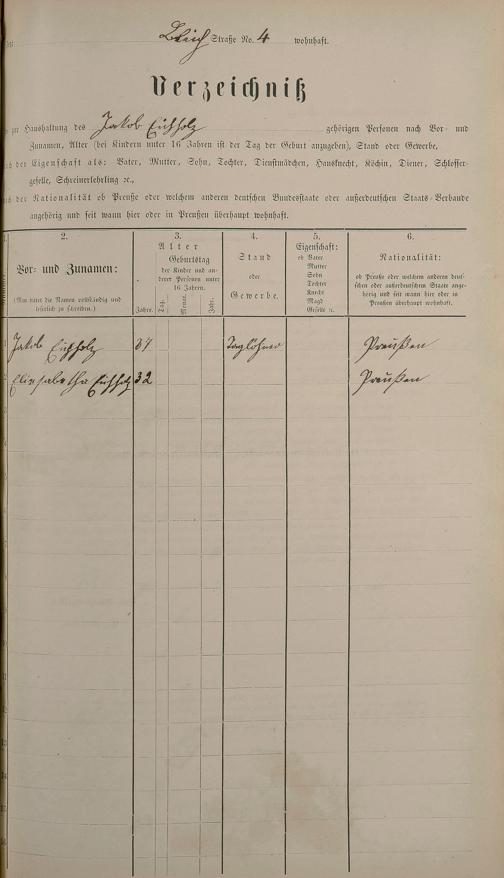 Bleich Straße No. 4 wohnhaft.
Verzeichniß
zur Haushaltung des Jakob Eichholz gehörigen Personen nach Vor- und
Zunamen, Alter (bei Kindern unter 16 Jahren ist der Tag der Geburt anzugeben), Stand oder Gewerbe,
nach der Eigenschaft als: Vater, Mutter, Sohn, Tochter, Dienstmädchen, Hausknecht, Köchin, Diener, Schlosser-
geselle, Schreinerlehrling ꝛc.,
nach der Nationalität ob Preuße oder welchem anderen deutschen Bundesstaate oder außerdeutschen Staats-Verbande
angehörig und seit wann hier oder in Preußen überhaupt wohnhaft.
2.
Vor- und Zunamen:
(Man bittet die Namen vollständig und
leserlich zu schreiben.)
3.
Alter
Geburtstag
der Kinder und an-
derer Personen unter
16 Jahren.
Jahre.
Tag.
Monat.
Jahr.
4.
Stand
oder
Gewerbe.
5.
Eigenschaft:
ob Vater
Mutter
Sohn
Tochter
Knecht
Magd
Geselle ꝛc.
6.
Nationalität:
ob Preuße oder welchem anderen deut-
schen oder außerdeutschen Staate ange-
hörig und seit wann hier oder in
Preußen überhaupt wohnhaft.
Jakob Eichholz 37 Taglöhner Preußen
Elisabetha Eichholz 32 Preußen